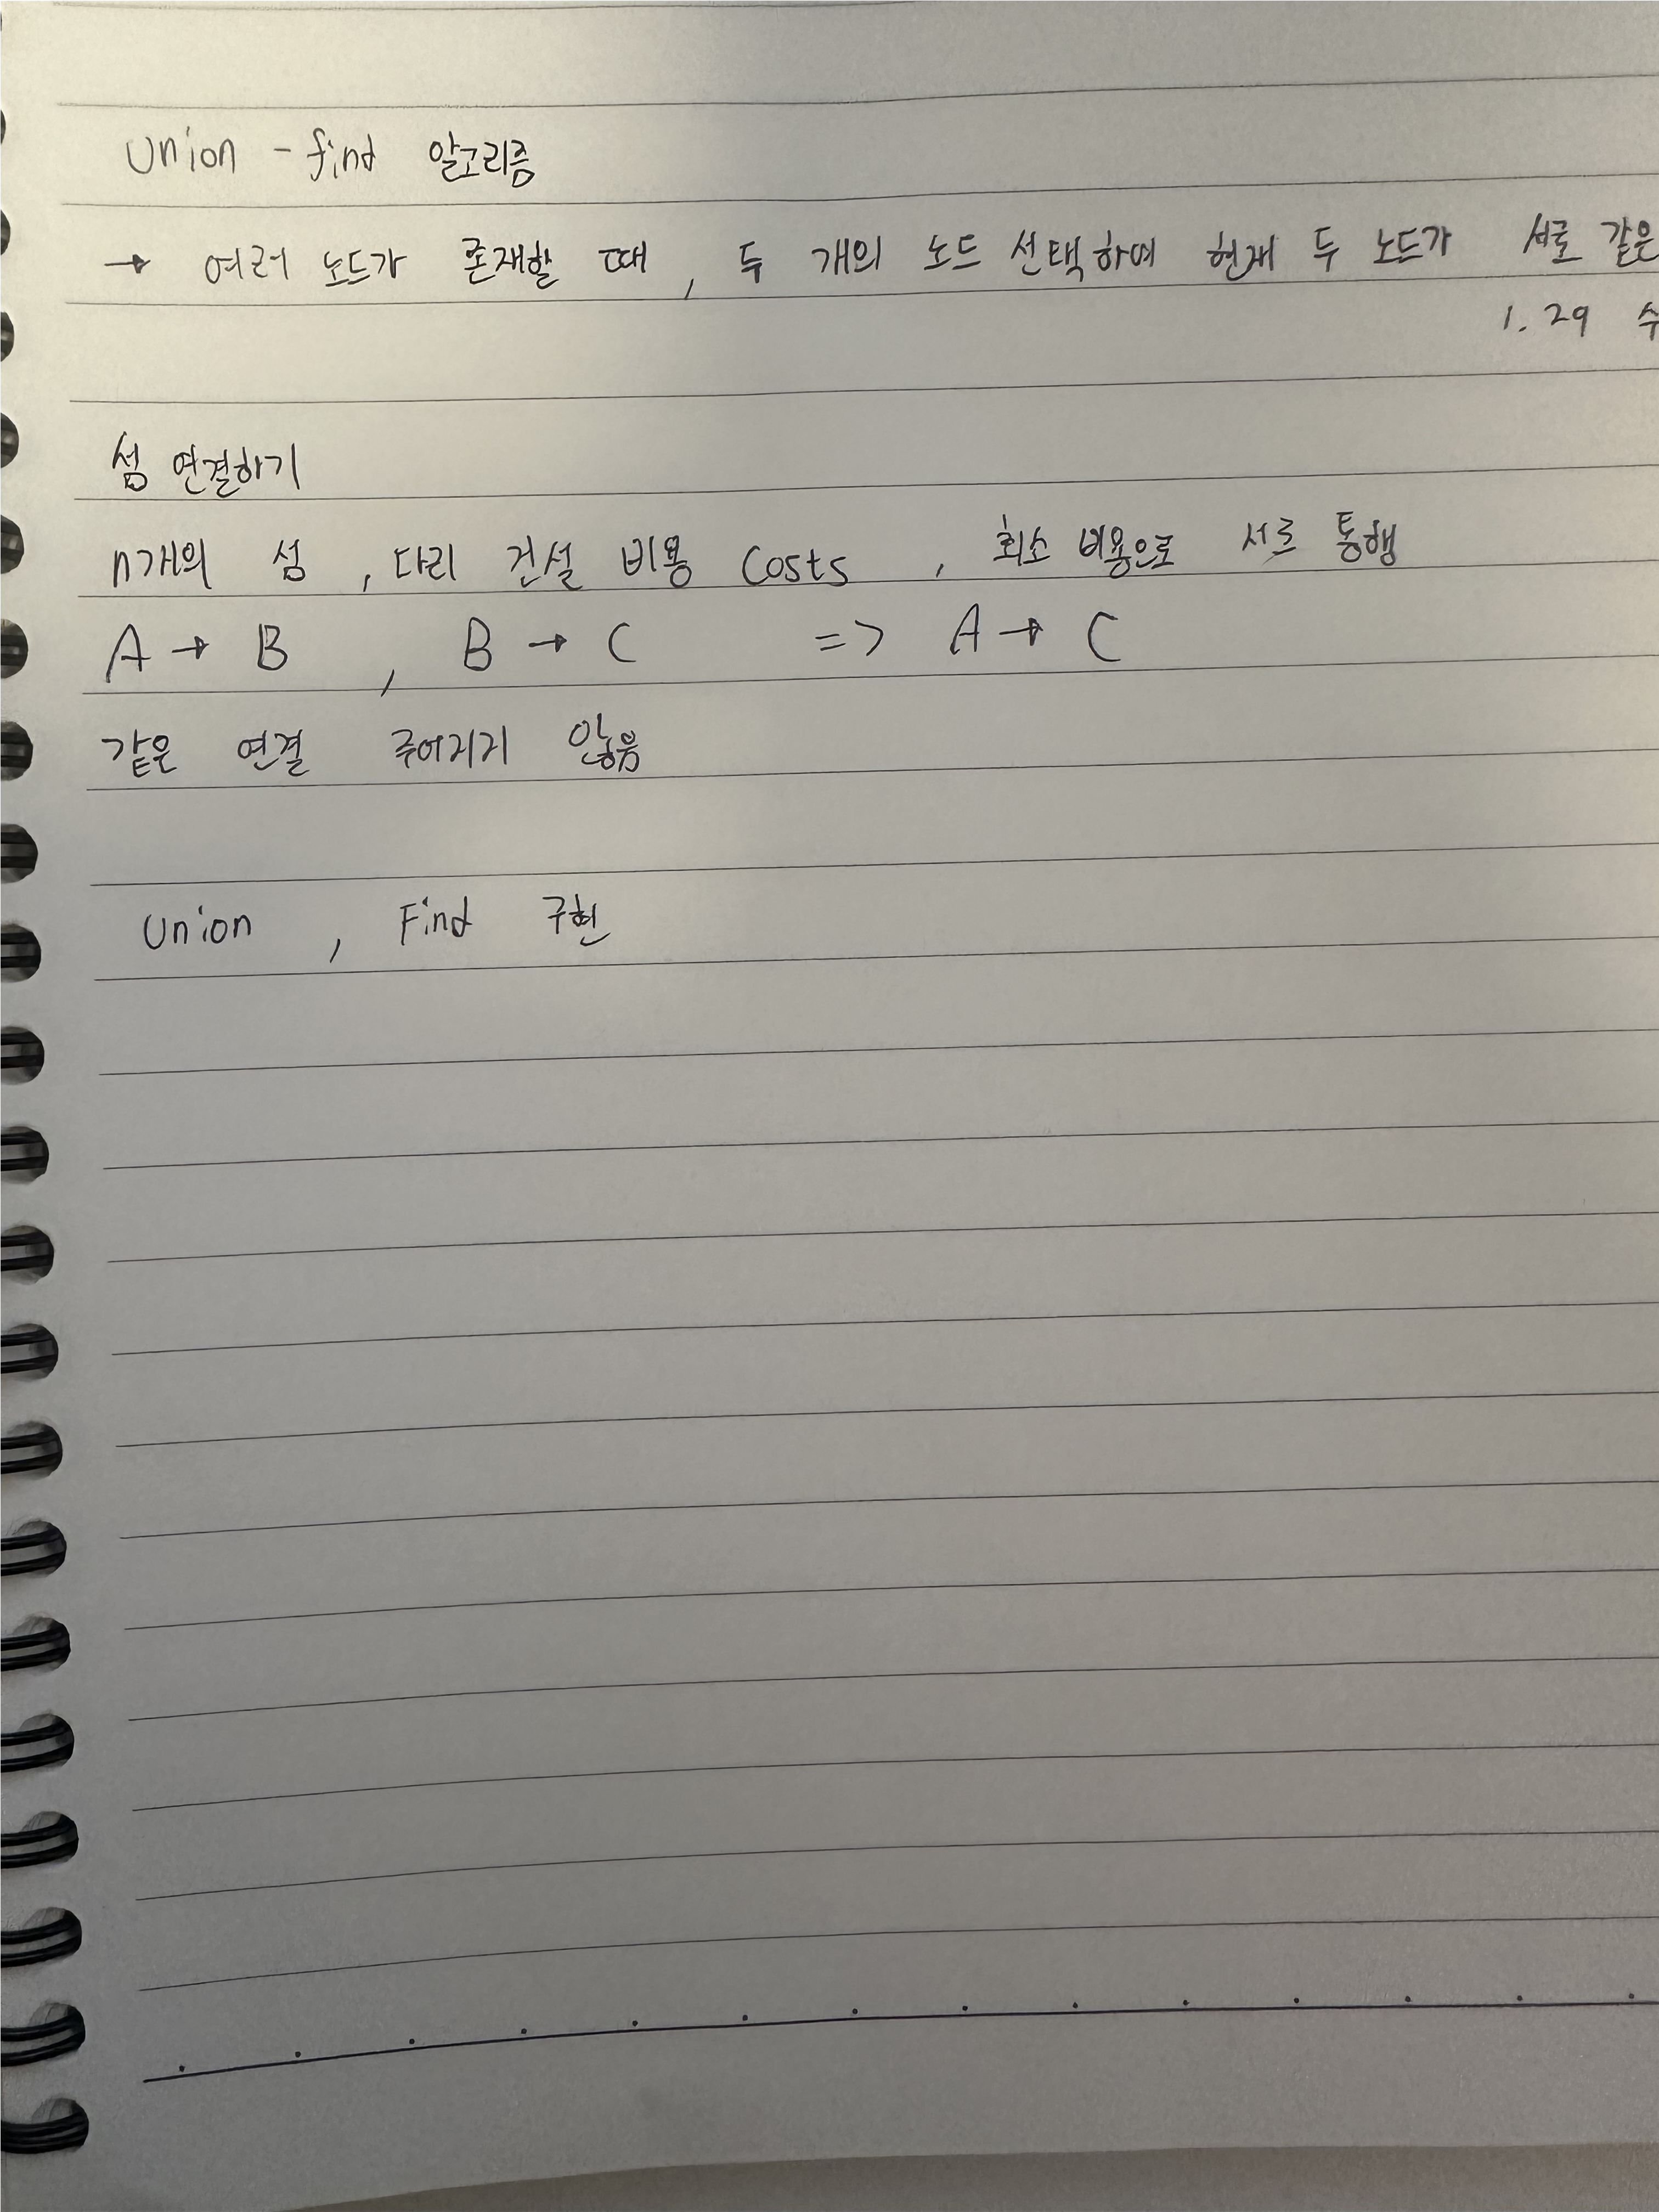 Union - find 알고리즘
→ 여러 노드가 존재할 때, 두 개의 노드 선택하여 현재 두 노드가 서로 같은
1. 29 수
섬 연결하기
n개의 섬, 다리 건설 비용 Costs, 최소 비용으로 서로 통행
A → B, B → C => A → C
같은 연결 주어지지 않음
Union, Find 구현